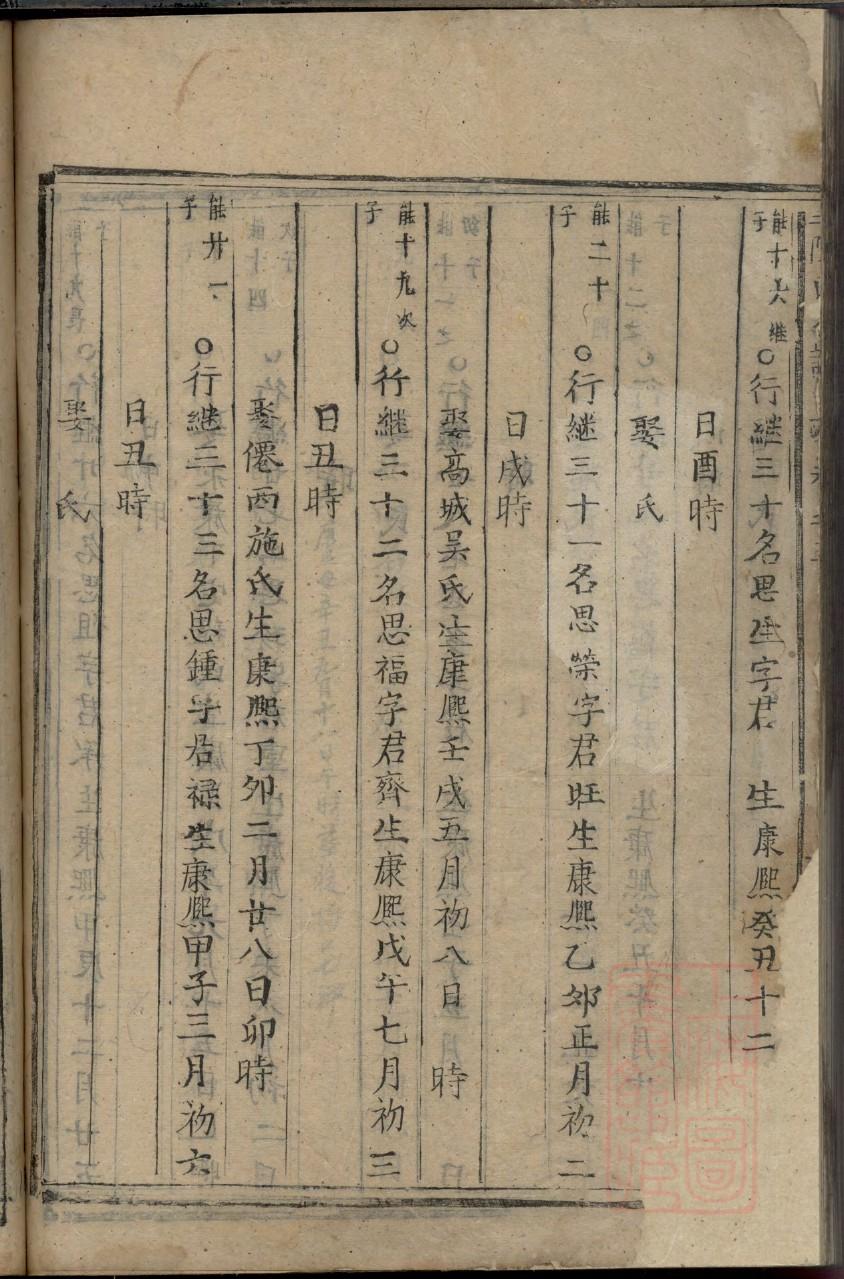 能十六继子○行継三十名思生字君　生康熙癸丑十二
日酉時
娶　氏
能二十子○行継三十一名思榮字君旺生康熙乙卯正月初二
日戌時
娶高城吴氏生康熙壬戌五月初八日　時
能十九次子○行継三十二名思福字君齊生康熙戊午七月初三
日丑時
娶僊西施氏生康熙丁卯二月廿八日卯時
能廿一子○行継三十三名思鍾字君禄生康熙甲子三月初六
日丑時
娶　氏